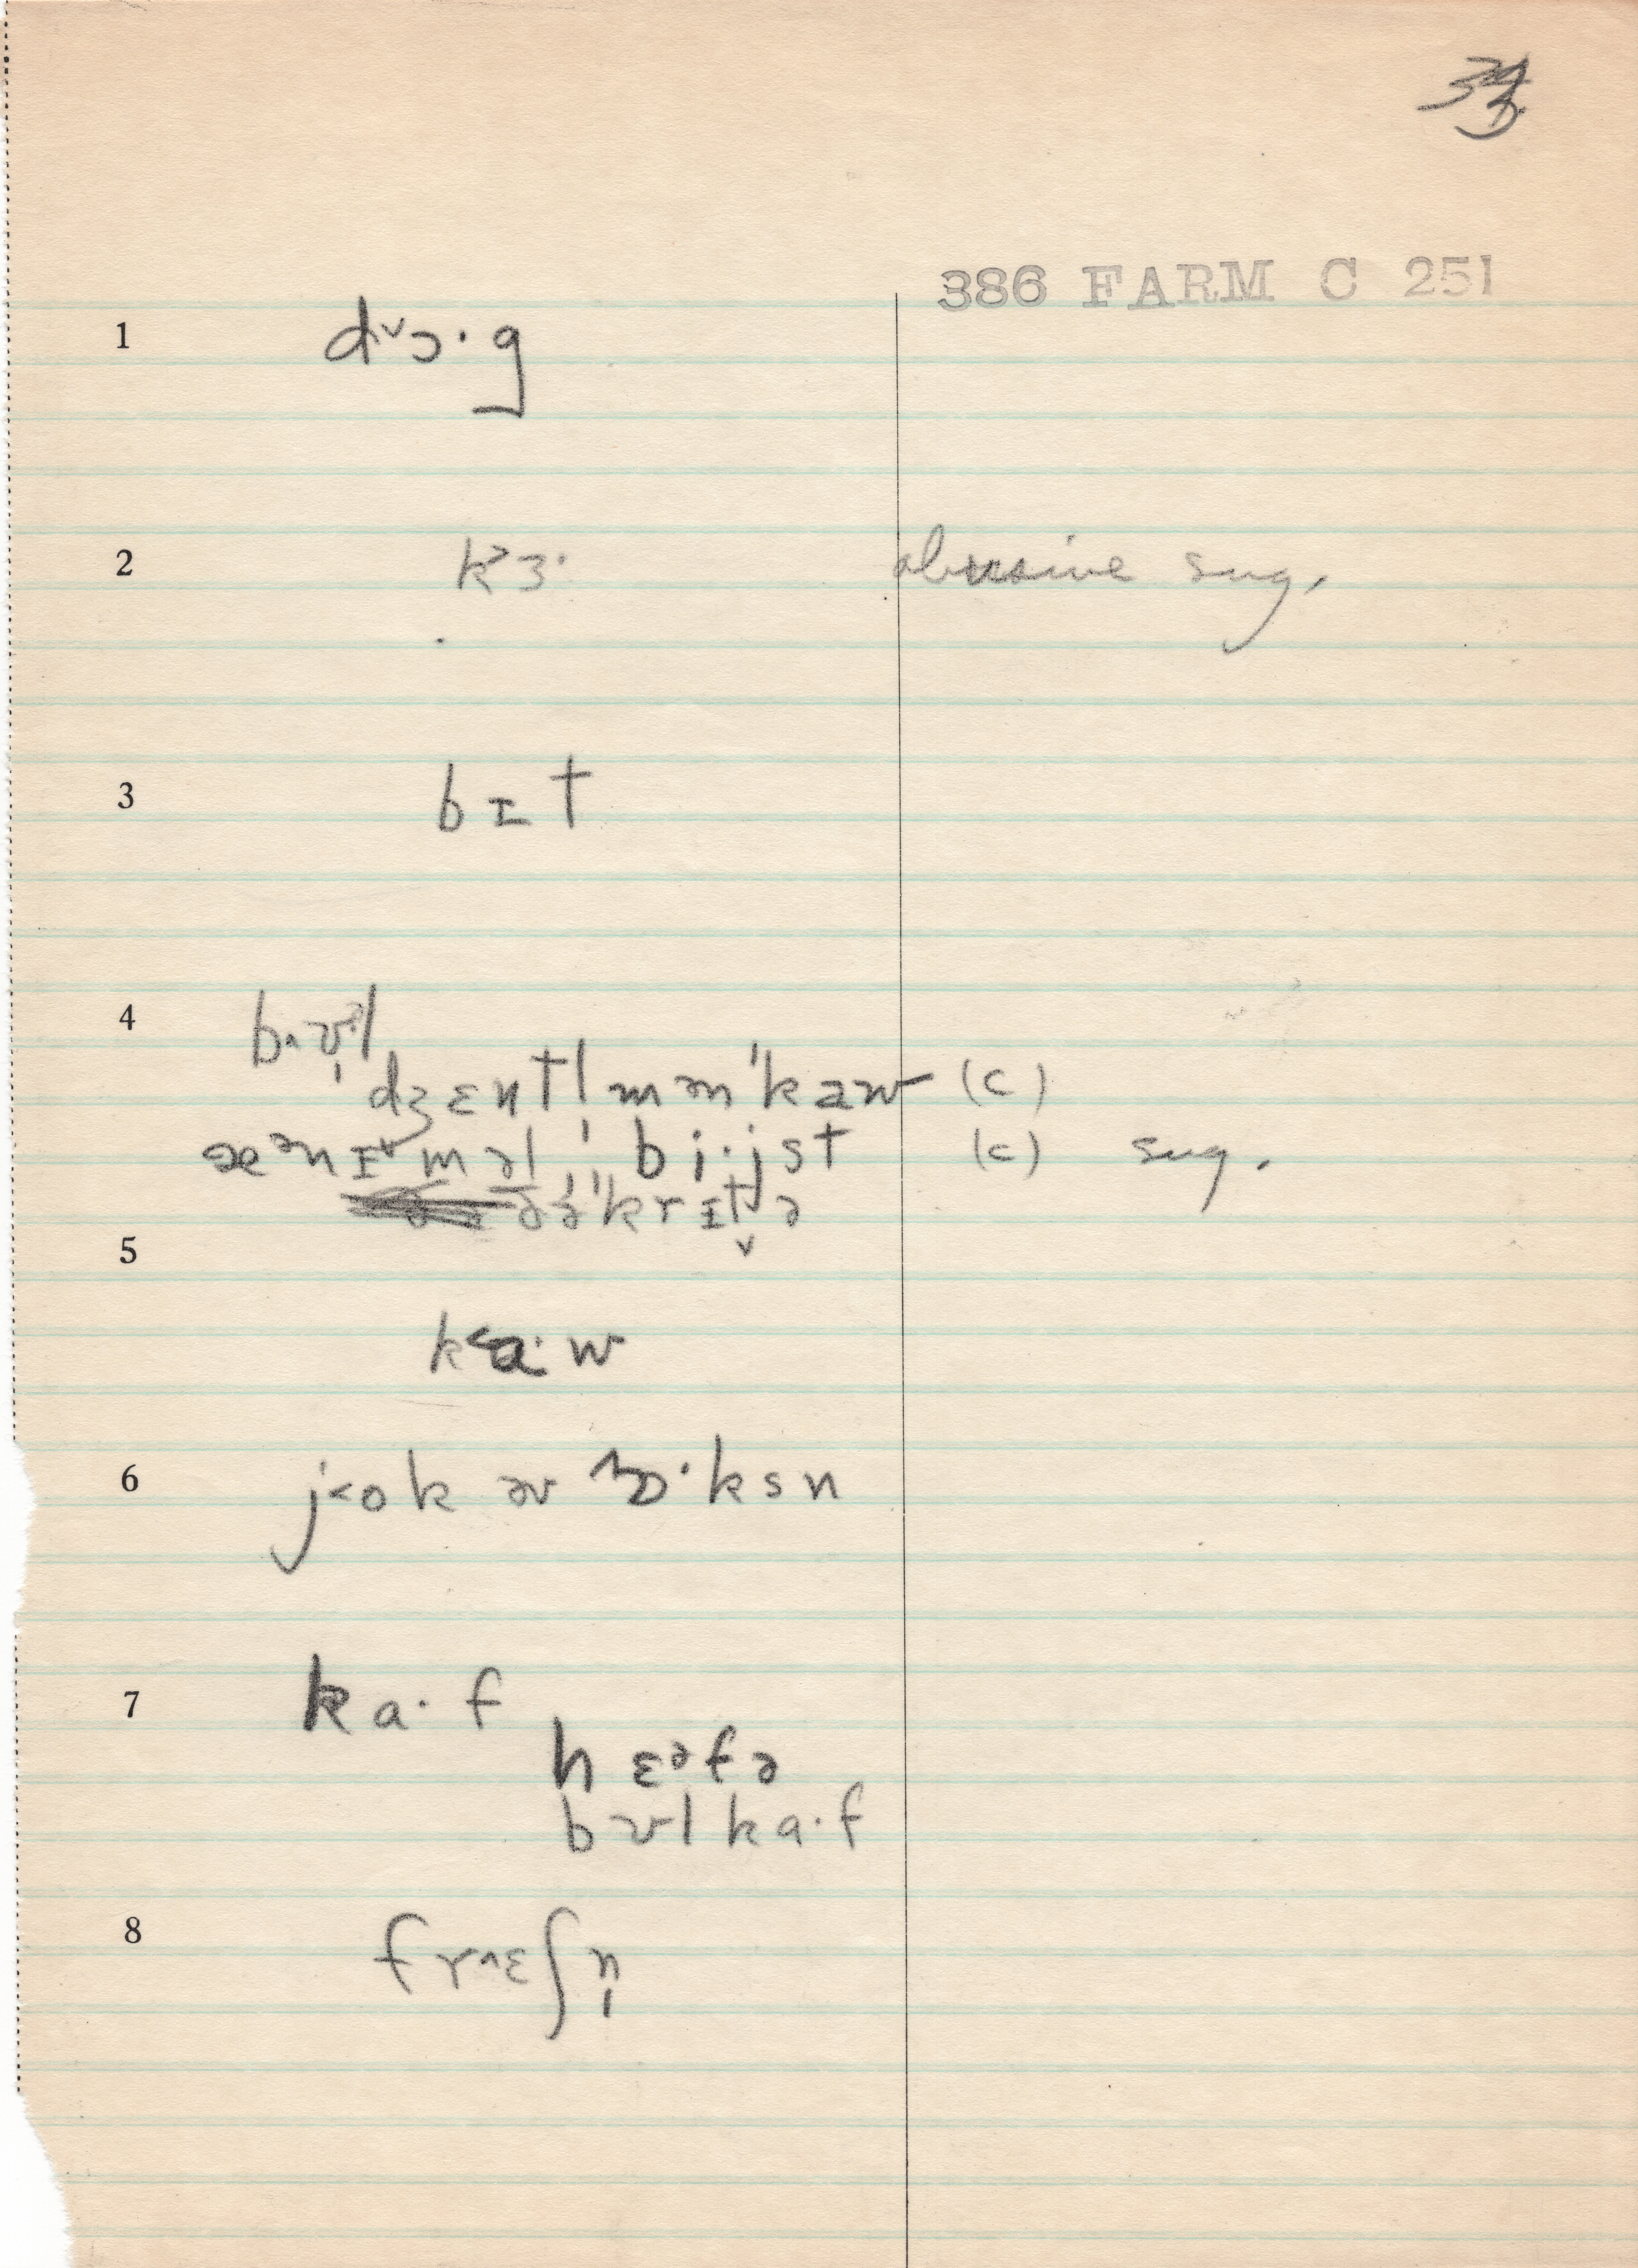 33
386 FARM C 251
1 d˅ɔ·g
2 k˃ɜ· abusive sug.
3 bɪt
4 b˄ʊ̩l
dʒɛntl̩mən'kaw (c)
æᵊnɪ˅məl bi·jst (c) sug.
ðə'krɪtjə
5
k˂a·w
6 j˂ok əv ɒ·ksn
7 ka·f
hɛᵊfə
bʊlka·f
8 fr˄ɛʃn̩